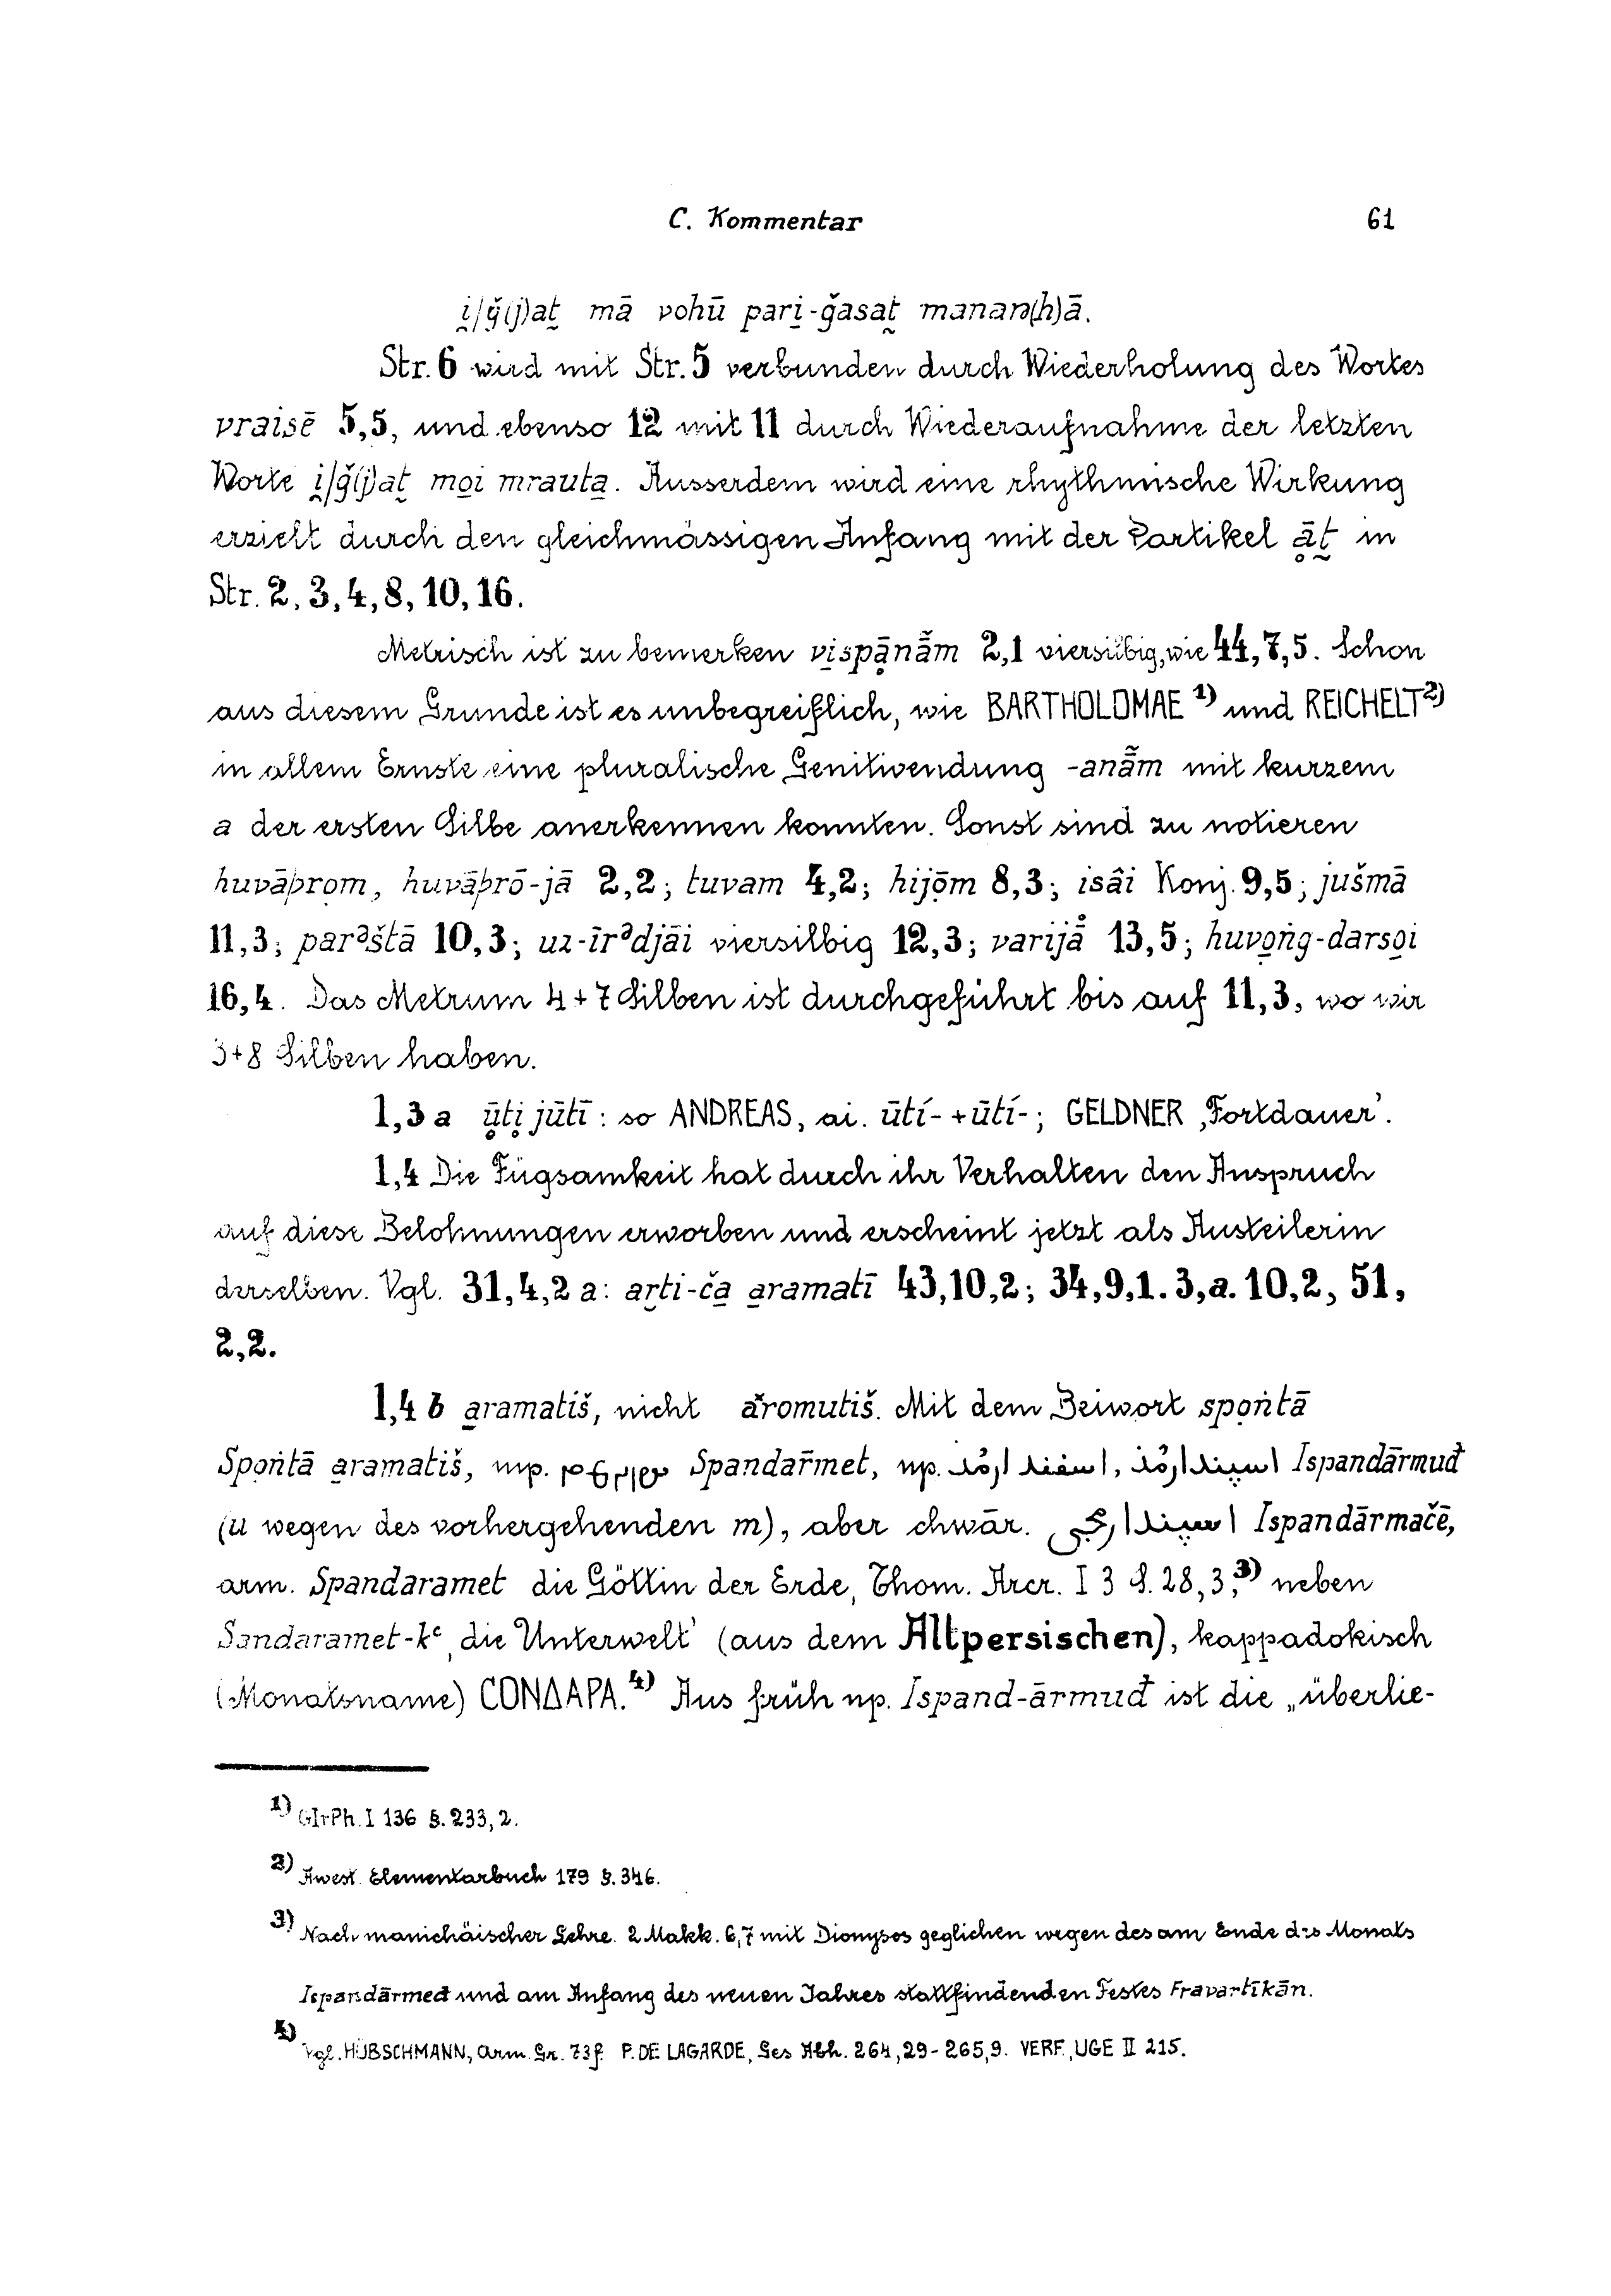 C. Kommentar 61
i̯/ǧ(j)at̰ mā vohū pari̯-ǧasat̰ manaŋ(h)ā.
Str. 6 wird mit Str. 5 verbunden durch Wiederholung des Wortes
vraisē 5,5, und ebenso 12 mit 11 durch Wiederaufnahme der letzten
Worte i̯/ǧ(j)at̰ mo̯i mrauta̱. Ausserdem wird eine rhythmische Wirkung
erzielt durch den gleichmässigen Anfang mit der Partikel ḁ̄t̰ in
Str. 2, 3, 4, 8, 10, 16.
Metrisch ist zu bemerken vi̱spḁ̄nā̆̃m 2,1 viersilbig, wie 44,7,5. Schon
aus diesem Grunde ist es unbegreiflich, wie BARTHOLOMAE 1) und REICHELT 2)
in allem Ernste eine pluralische Genitivendung -anā̆̃m mit kurzem
a der ersten Silbe anerkennen konnten. Sonst sind zu notieren
huvāþro̥m, huvāþrō-jā 2,2; tuvam 4,2; hijō̥m 8,3; isâi Konj. 9,5; jušmā
11,3; parᵊštā 10,3; uz-īrᵊdjāi viersilbig 12,3; varijā̊ 13,5; huvo̱ṅg-darso̱i
16,4. Das Metrum 4+7 Silben ist durchgeführt bis auf 11,3, wo wir
3+8 Silben haben.
1,3 a ū̥ti̥ jūtī: so ANDREAS, ai. ūtí- + ūtí-; GELDNER ‚Fortdauer'.
1,4 Die Fügsamkeit hat durch ihr Verhalten den Anspruch
auf diese Belohnungen erworben und erscheint jetzt als Austeilerin
derselben. Vgl. 31,4,2 a: ar̯ti-ča̱ a̱ramatī 43,10,2; 34,9,1. 3,a. 10,2, 51,
2,2.
1,4 b a̱ramatiš, nicht ā̆romutiš. Mit dem Beiwort spo̥ṅtā
Spo̥ṅtā a̱ramatiš, mp. Spandar̄met, np. اسفندارمُذ, اسپندارمُذ Ispandārmuđ
(u wegen des vorhergehenden m), aber chwār. اسپندارمچی Ispandārmačē,
arm. Spandaramet die Göttin der Erde, Thom. Arcr. I 3 S. 28,3,3) neben
Sandaramet-kʿ ‚die Unterwelt' (aus dem Altpersischen), kappadokisch
(Monatsname) CONΔAPA.4) Aus früh np. Ispand-ārmuđ ist die „überlie-
1) GIrPh. I 136 §. 233, 2.
2) Awest. Elementarbuch 179 §. 346.
3) Nach manichäischer Lehre. 2 Makk. 6,7 mit Dionysos geglichen wegen des am Ende des Monats
Ispandārmeđ und am Anfang des neuen Jahres stattfindenden Festes Fravartīkān.
4) Vgl. HÜBSCHMANN, Arm. Gr. 73f. P. DE LAGARDE, Ges. Abh. 264,29-265,9. VERF., UGE II 215.